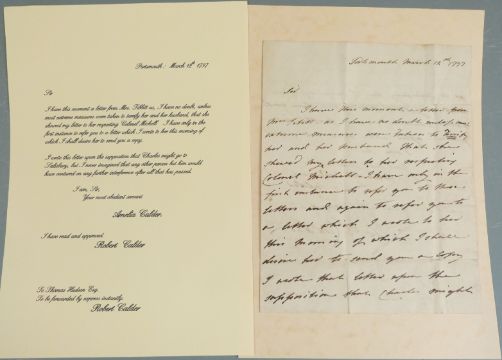 Portsmouth: March 12th 1797
Sir
I have this moment a letter from Mrs. Tibbitt as, I have no doubt, unless
most extreme measures were taken to terrify her and her husband, that she
showed my letter to her respecting Colonel Mitchell. I have only in the
first instance to refer you to a letter which I wrote to her this morning of
which I shall desire her to send you a copy.
I wrote this letter upon the supposition that Charles might go to
Salisbury, but I never imagined that any other person but him would
have ventured on any further interference after all that has passed.
I am, Sir,
Your most obedient servant
Amelia Calder.
I have read and approved.
Robert Calder
To Thomas Hudson Esq.
To be forwarded by express instantly.
Robert Calder
Portsmouth March 12th 1797
Sir
I have this moment a letter from
as I have no doubt unless
extreme measures were taken to terrify
her and her husband that she
shewed my letters to her respecting
Colonel Mitchell - I have only in the
first instance to refer you to those
letters and again to refer you to
a letter which I wrote to her
this morning of which I shall
desire her to send you a copy
I wrote that letter upon the
supposition that Charles might